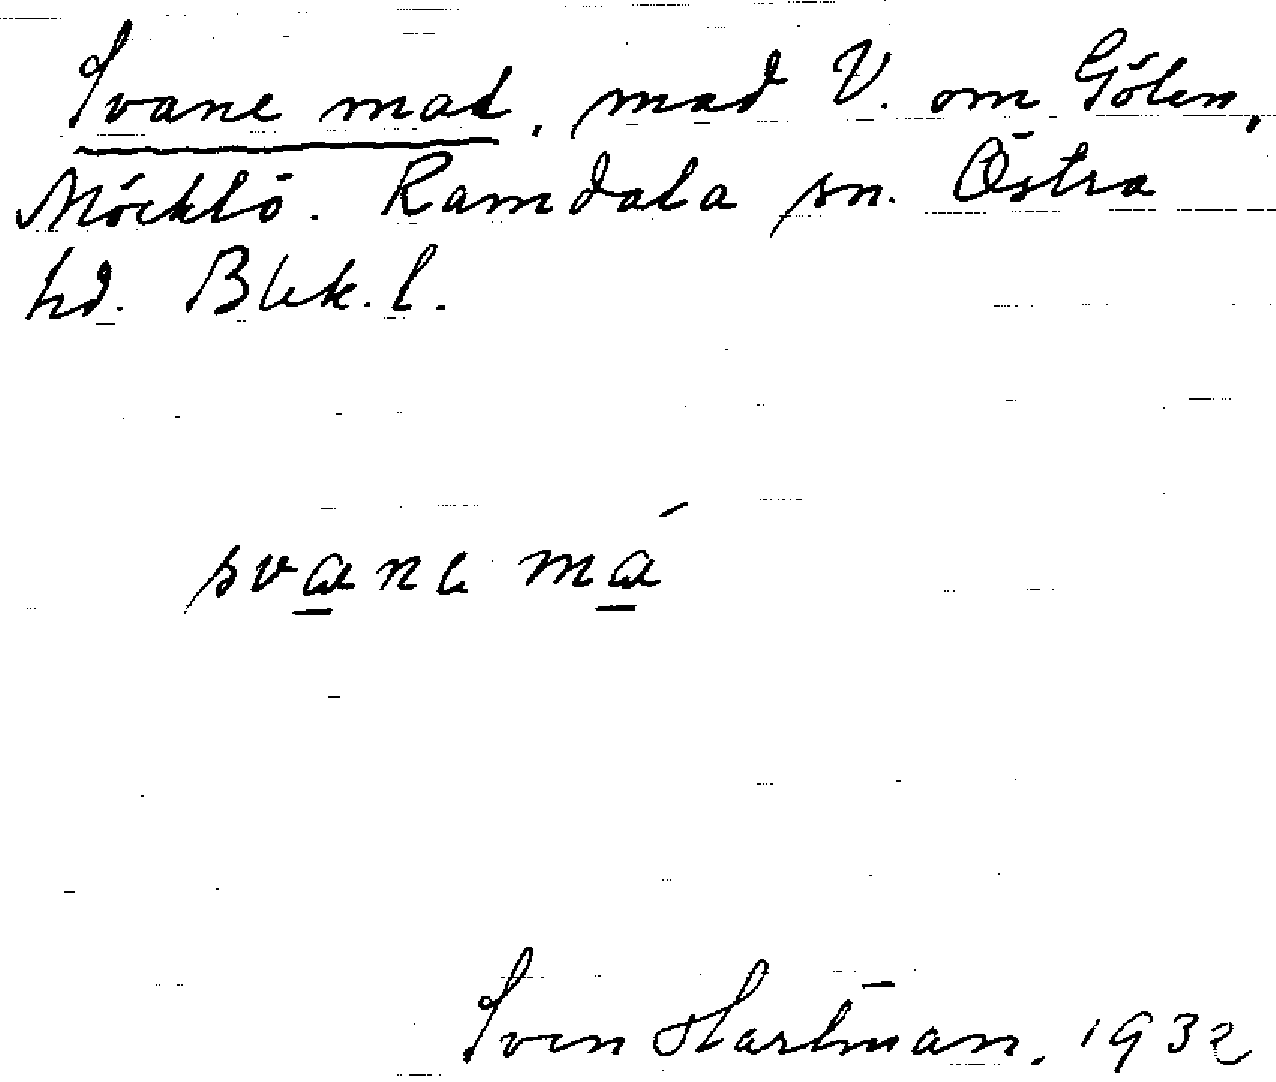 Svane mad, mad V. om Gölen,
Möcklö. Ramdala sn. Östra
hd. Blek. l.
svane má
Sven Hartman. 1932